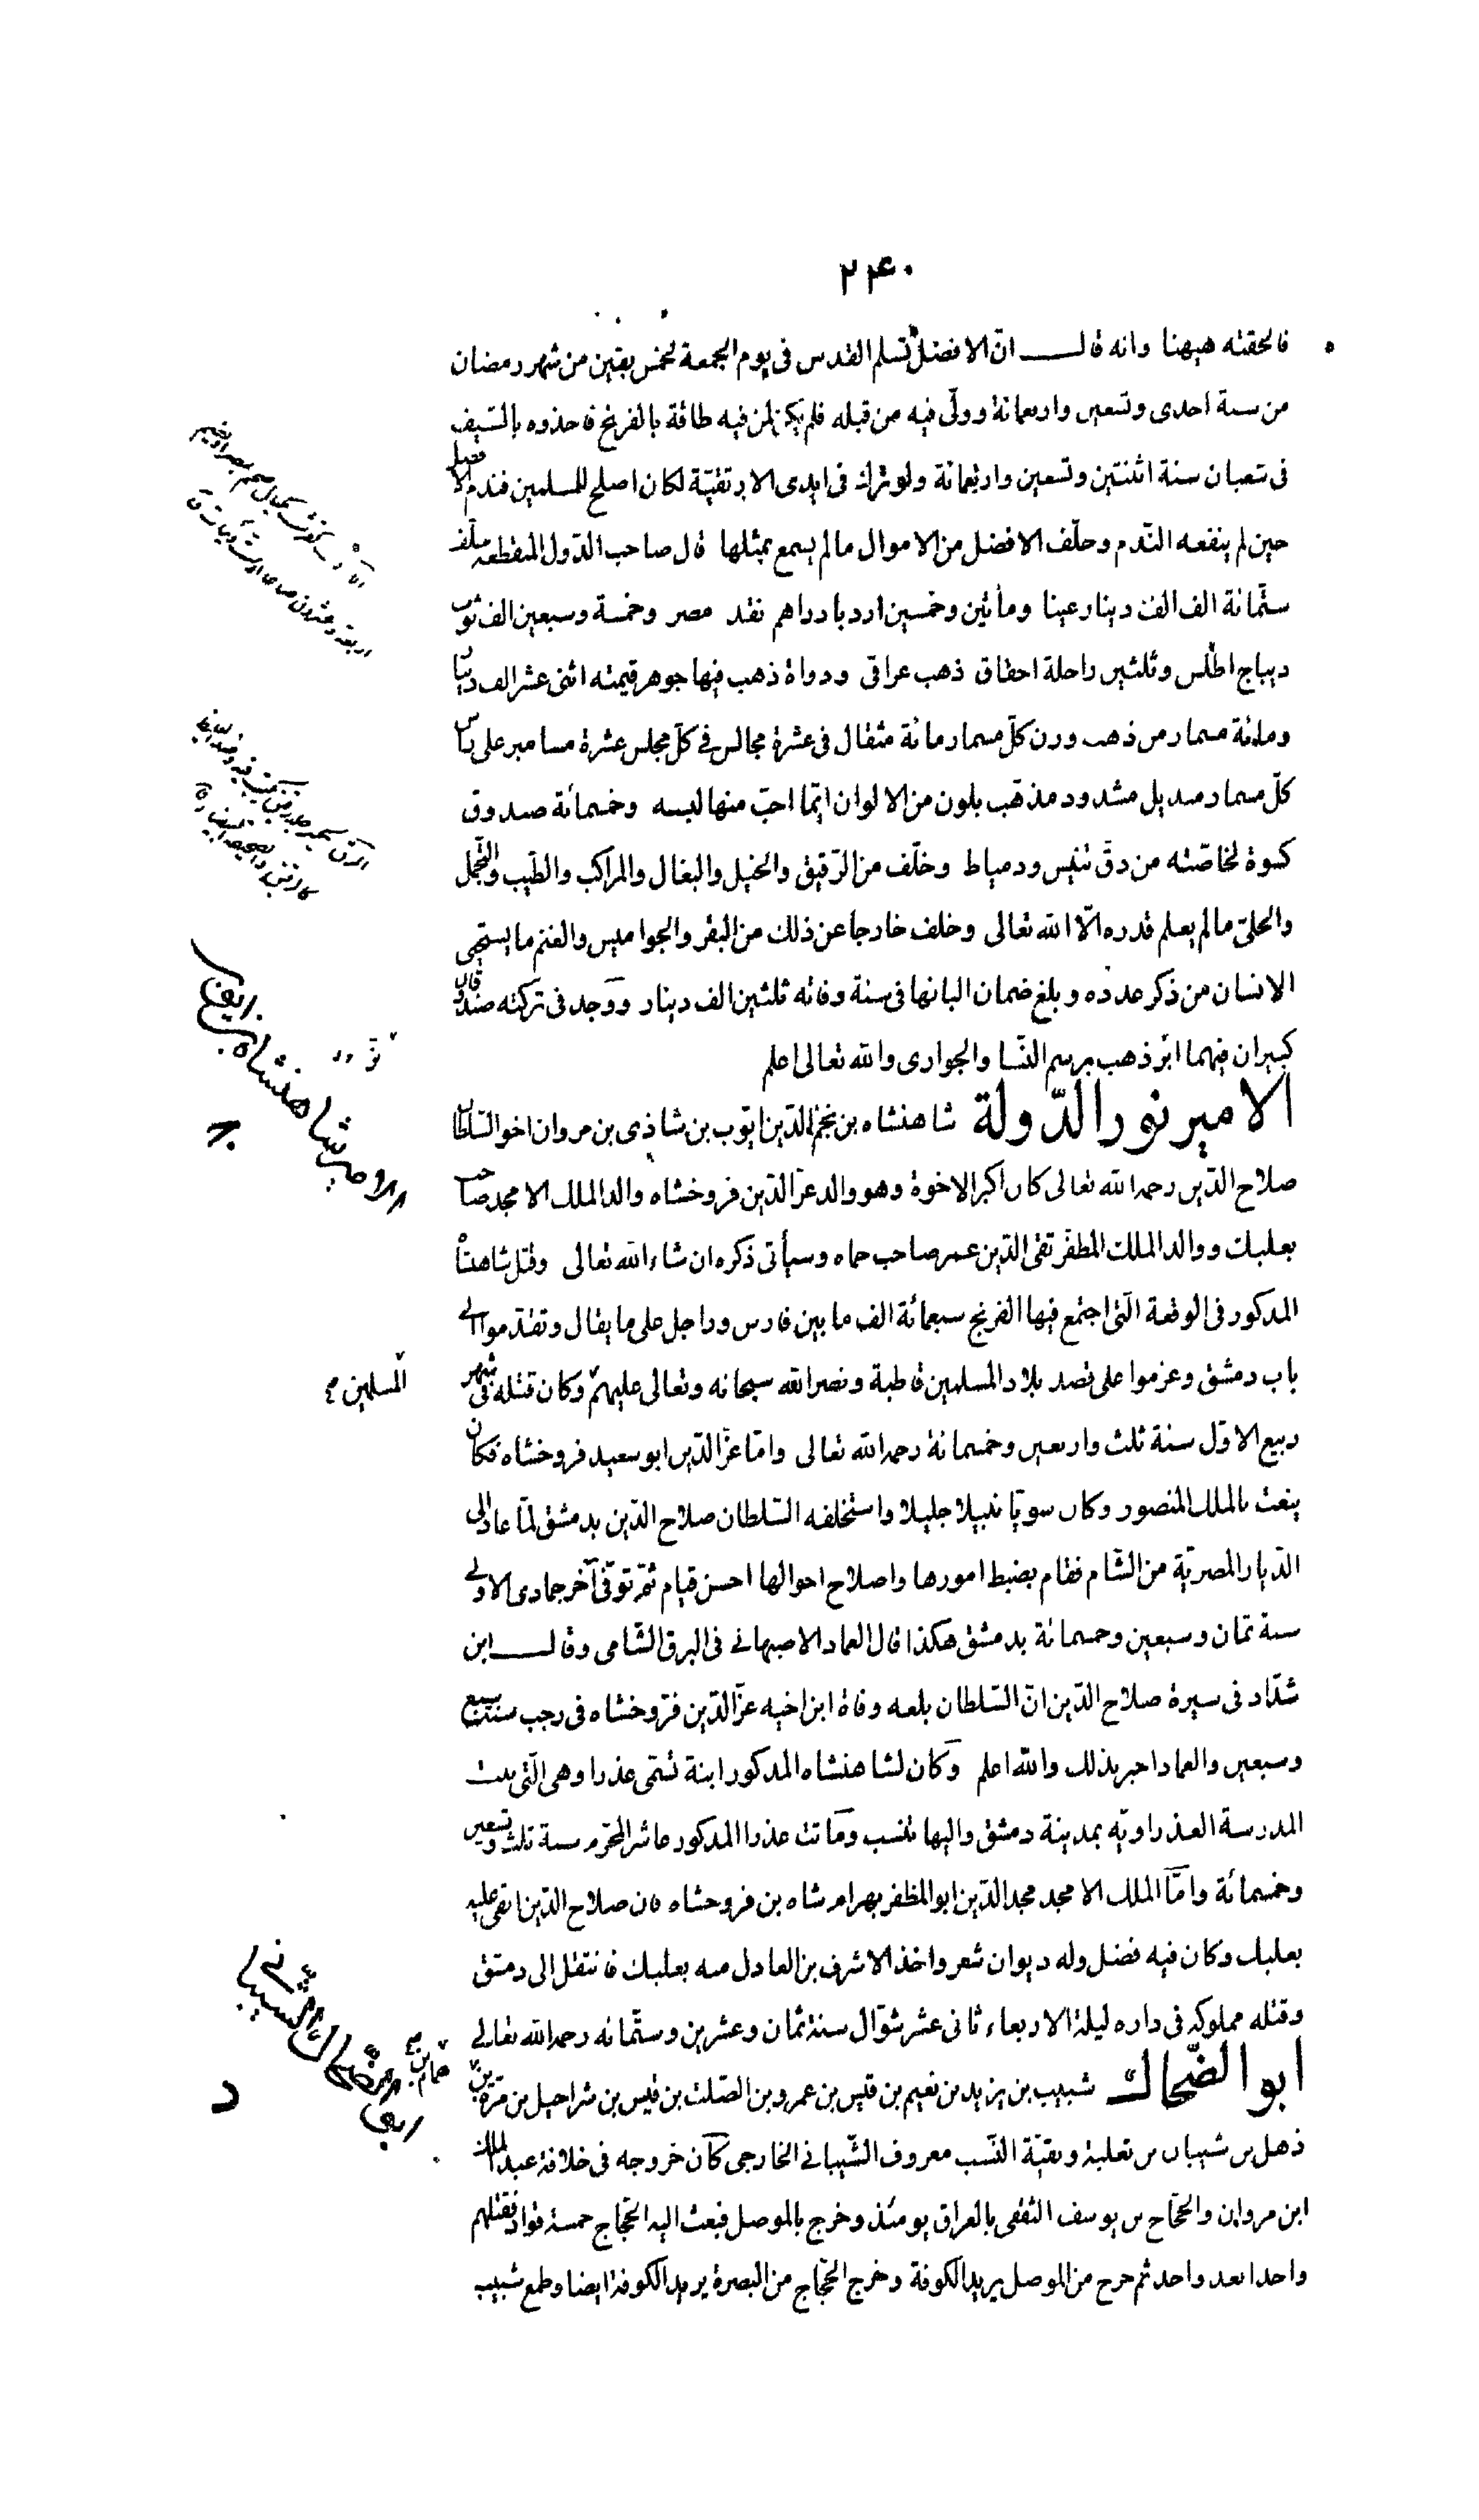 ٢٤٠
فالحقته هيهنا وانه قال انّ الافضل تسلم القدس فى يوم الجمعة لخمس بقين من شهر رمضان
من سنة احدى وتسعين واربعمائة وولّى فيه من قبله فلم يكن لمن فيه طاقة بالفرنج فاخذوه بالسّيف
فى شعبان سنة اثنتين وتسعين واربعمائة ولو ترك فى ايدى الارتقيّة لكان اصلح للمسلمين فندم الافضل
حين لم ينفعه النّدم وخلّف الافضل من الاموال ما لم يسمع بمثلها قال صاحب الدّول المنقطعه خلّف
ستّمائة الف الف دينار عينا ومأتين وخمسين اردبا دراهم نقد مصر وخمسة وسبعين الف ثوب
ديباج اطلس وثلثين راحلة احقاق ذهب عراقى ودواة ذهب فيها جوهر قيمته اثنى عشر الف دينار
ومائة مسمار من ذهب وزن كلّ مسمار مائة مثقال فى عشرة مجالس فى كلّ مجلس عشرة مسامير على
كلّ مسمار منديل مشدود مذهّب بلون من الالوان ايّما احبّ منها لبسه وخمسمائة صندوق
كسوة لخاصّته من دقّ تنيس ودمياط وخلّف من الرّقيق والخيل والبغال والمراكب والطّيب والتّجمّل
والحلىّ ما لم يعلم قدره الّا الله تعالى وخلف خارجا عن ذلك من البقر والجواميس والغنم ما يستحيى
الانسان من ذكر عدده وبلغ ضمان البانها فى سنة وفاته ثلثين الف دينار ووجد فى تركته صندوقان
كبيران فيهما ابر ذهب برسم النّسا والجوارى والله تعالى اعلم
الامير نور الدّولة شاهنشاه بن نجم الدّين ايّوب بن شاذى بن مروان اخو السّلطان
صلاح الدّين رحمه الله تعالى كان اكبر الاخوة وهو والد عزّ الدّين فروخشاه والد الملك الامجد صاحب
بعلبك ووالد الملك المظفّر تقى الدّين عمر صاحب حماه وسيأتى ذكره ان شاء الله تعالى وقتل شاهنشاه
المذكور فى الوقعة الّتى اجتمع فيها الفرنج سبعمائة الف ما بين فارس وراجل على ما يقال وتقدّموا الى
باب دمشق وعزموا على قصد بلاد المسلمين قاطبة ونصر الله سبحانه وتعالى عليهم وكان قتله فى شهر
المسلمين
ربيع الاوّل سنة ثلث واربعين وخمسمائة رحمه الله تعالى وامّا عزّ الدّين ابو سعيد فروخشاه فكان
ينعت بالملك المنصور وكان سريّا نبيلا جليلا واستخلفه السّلطان صلاح الدّين بدمشق لمّا عاد الى
الدّيار المصريّة من الشّام فقام بضبط امورها واصلاح احوالها احسن قيام ثمّ توفّى آخر جمادى الاولى
سنة ثمان وسبعين وخمسمائة بدمشق هكذا قال العماد الاصبهانى فى البرق الشّامى وقال ابن
شدّاد فى سيرة صلاح الدّين انّ السّلطان بلغه وفاة ابن اخيه عزّ الدّين فرّوخشاه فى رجب سنة سبع
وسبعين والعماد اخبر بذلك والله اعلم وكان لشاهنشاه المذكور ابنة تسّمى عذرا وهى الّتى بنت
المدرسة العذراويّه بمدينة دمشق واليها تنسب وماتت عذرا المذكور عاشر المحرّم سنة ثلث وتسعين
وخمسمائة وامّا الملك الامجد مجد الدّين ابو المظفر بهرام شاه بن فروخشاه فان صلاح الدّين ابقى عليه
بعلبك وكان فيه فضل وله ديوان شعر واخذ الاشرف بن العادل منه بعلبك فانتقل الى دمشق
وقتله مملوكه فى داره ليلة الاربعاء ثانى عشر شوّال سنة ثمان وعشرين وستّمائه رحمه الله تعالى
ابو الضّحاك شبيب بن يزيد بن نعيم بن قيس بن عمرو بن الصّلت بن قيس بن شراحيل بن مرّة بن
همام بن
ذهل بن شيبان بن ثعلبة وبقيّة النّسب معروف الشّيبانى الخارجى كان خروجه فى خلافة عبد الملك
ابن مروان والحجّاج بن يوسف الثقفى بالعراق يومئذ وخرج بالموصل فبعث اليه الحجّاج خمسة قواد فقتلهم
واحدا بعد واحد ثم خرج من الموصل يريد الكوفة وخرج الحجّاج من البصرة يريد الكوفة ايضا وطمع شبيب